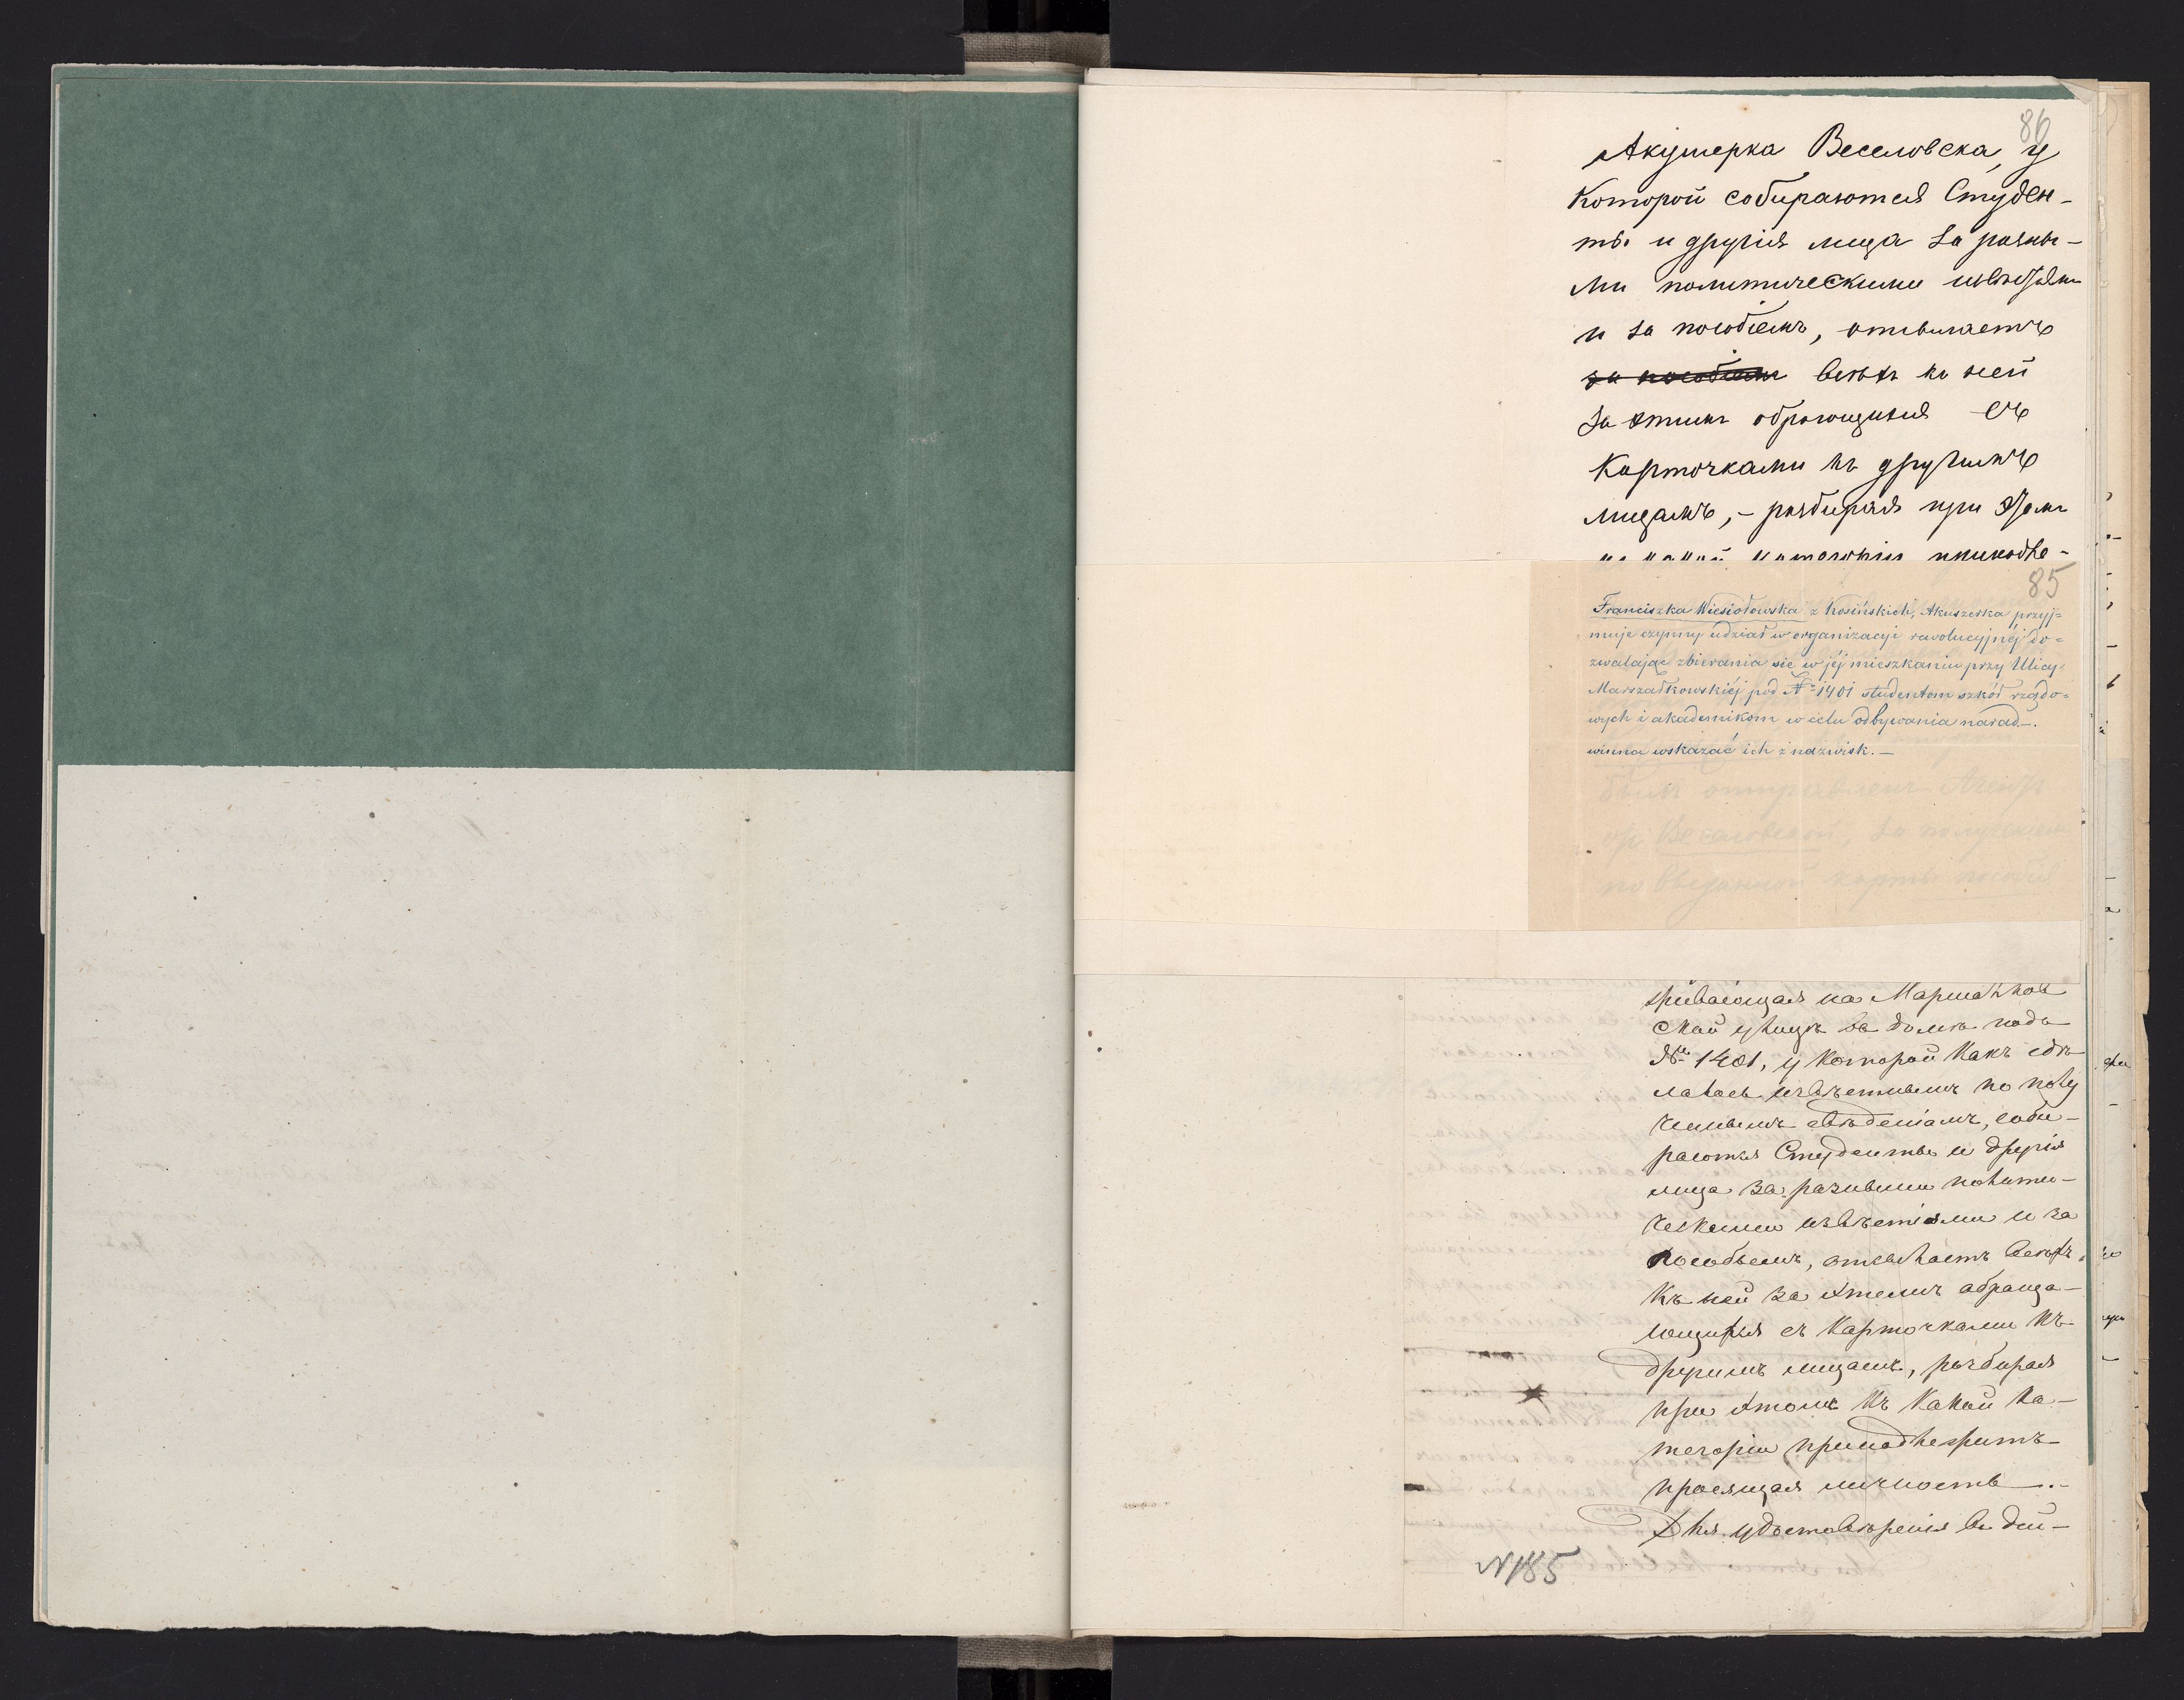 86
Акушерка Веселовска, у
которой собираются Студен-
ты и другія лица за разны-
ми политическими извѣстіями
и за пособіемъ, отсылаетъ
за пособіемъ всѣхъ къ ней
за этимъ обращихся съ
карточками къ другимъ
лицамъ, - разбирая при этомъ
85
Franciszka Wiesiołowska z Kosińskich, Akuszerka przyj=
muje czynny udział w organizacyi rewolucyjnéj do=
zwalając zbierania się w jéj mieszkaniu przy Ulicy
Marszałkowskiéj pod № 1401 studentom szkół rządo=
wych i akademikom w celu odbywania narad.-.
winna wskazać ich z nazwisk.-
живающая на Маршалков
ской улицѣ въ домѣ подъ
№ 1401, у которой какъ сдѣ
лалось извѣстнымъ по полу
ченнымъ свѣденіямъ, соби-
раются Студенты и другія
лица за разными полити-
ческими извѣстіями и за
пособьемъ, отсылаетъ всѣхъ
къ ней за этимъ обраща-
ющихся съ карточками къ
другимъ лицамъ, разбирая
при этомъ къ какой ка-
тегоріи принадлежитъ
просящая личность.-
Для удостовѣренія въ дѣй-
N185